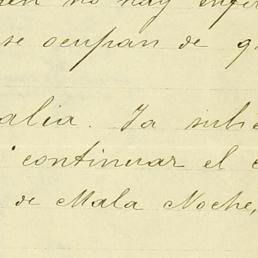 no hay
se ocupan de
alia. Ya
continuar el
de Mala Noche,